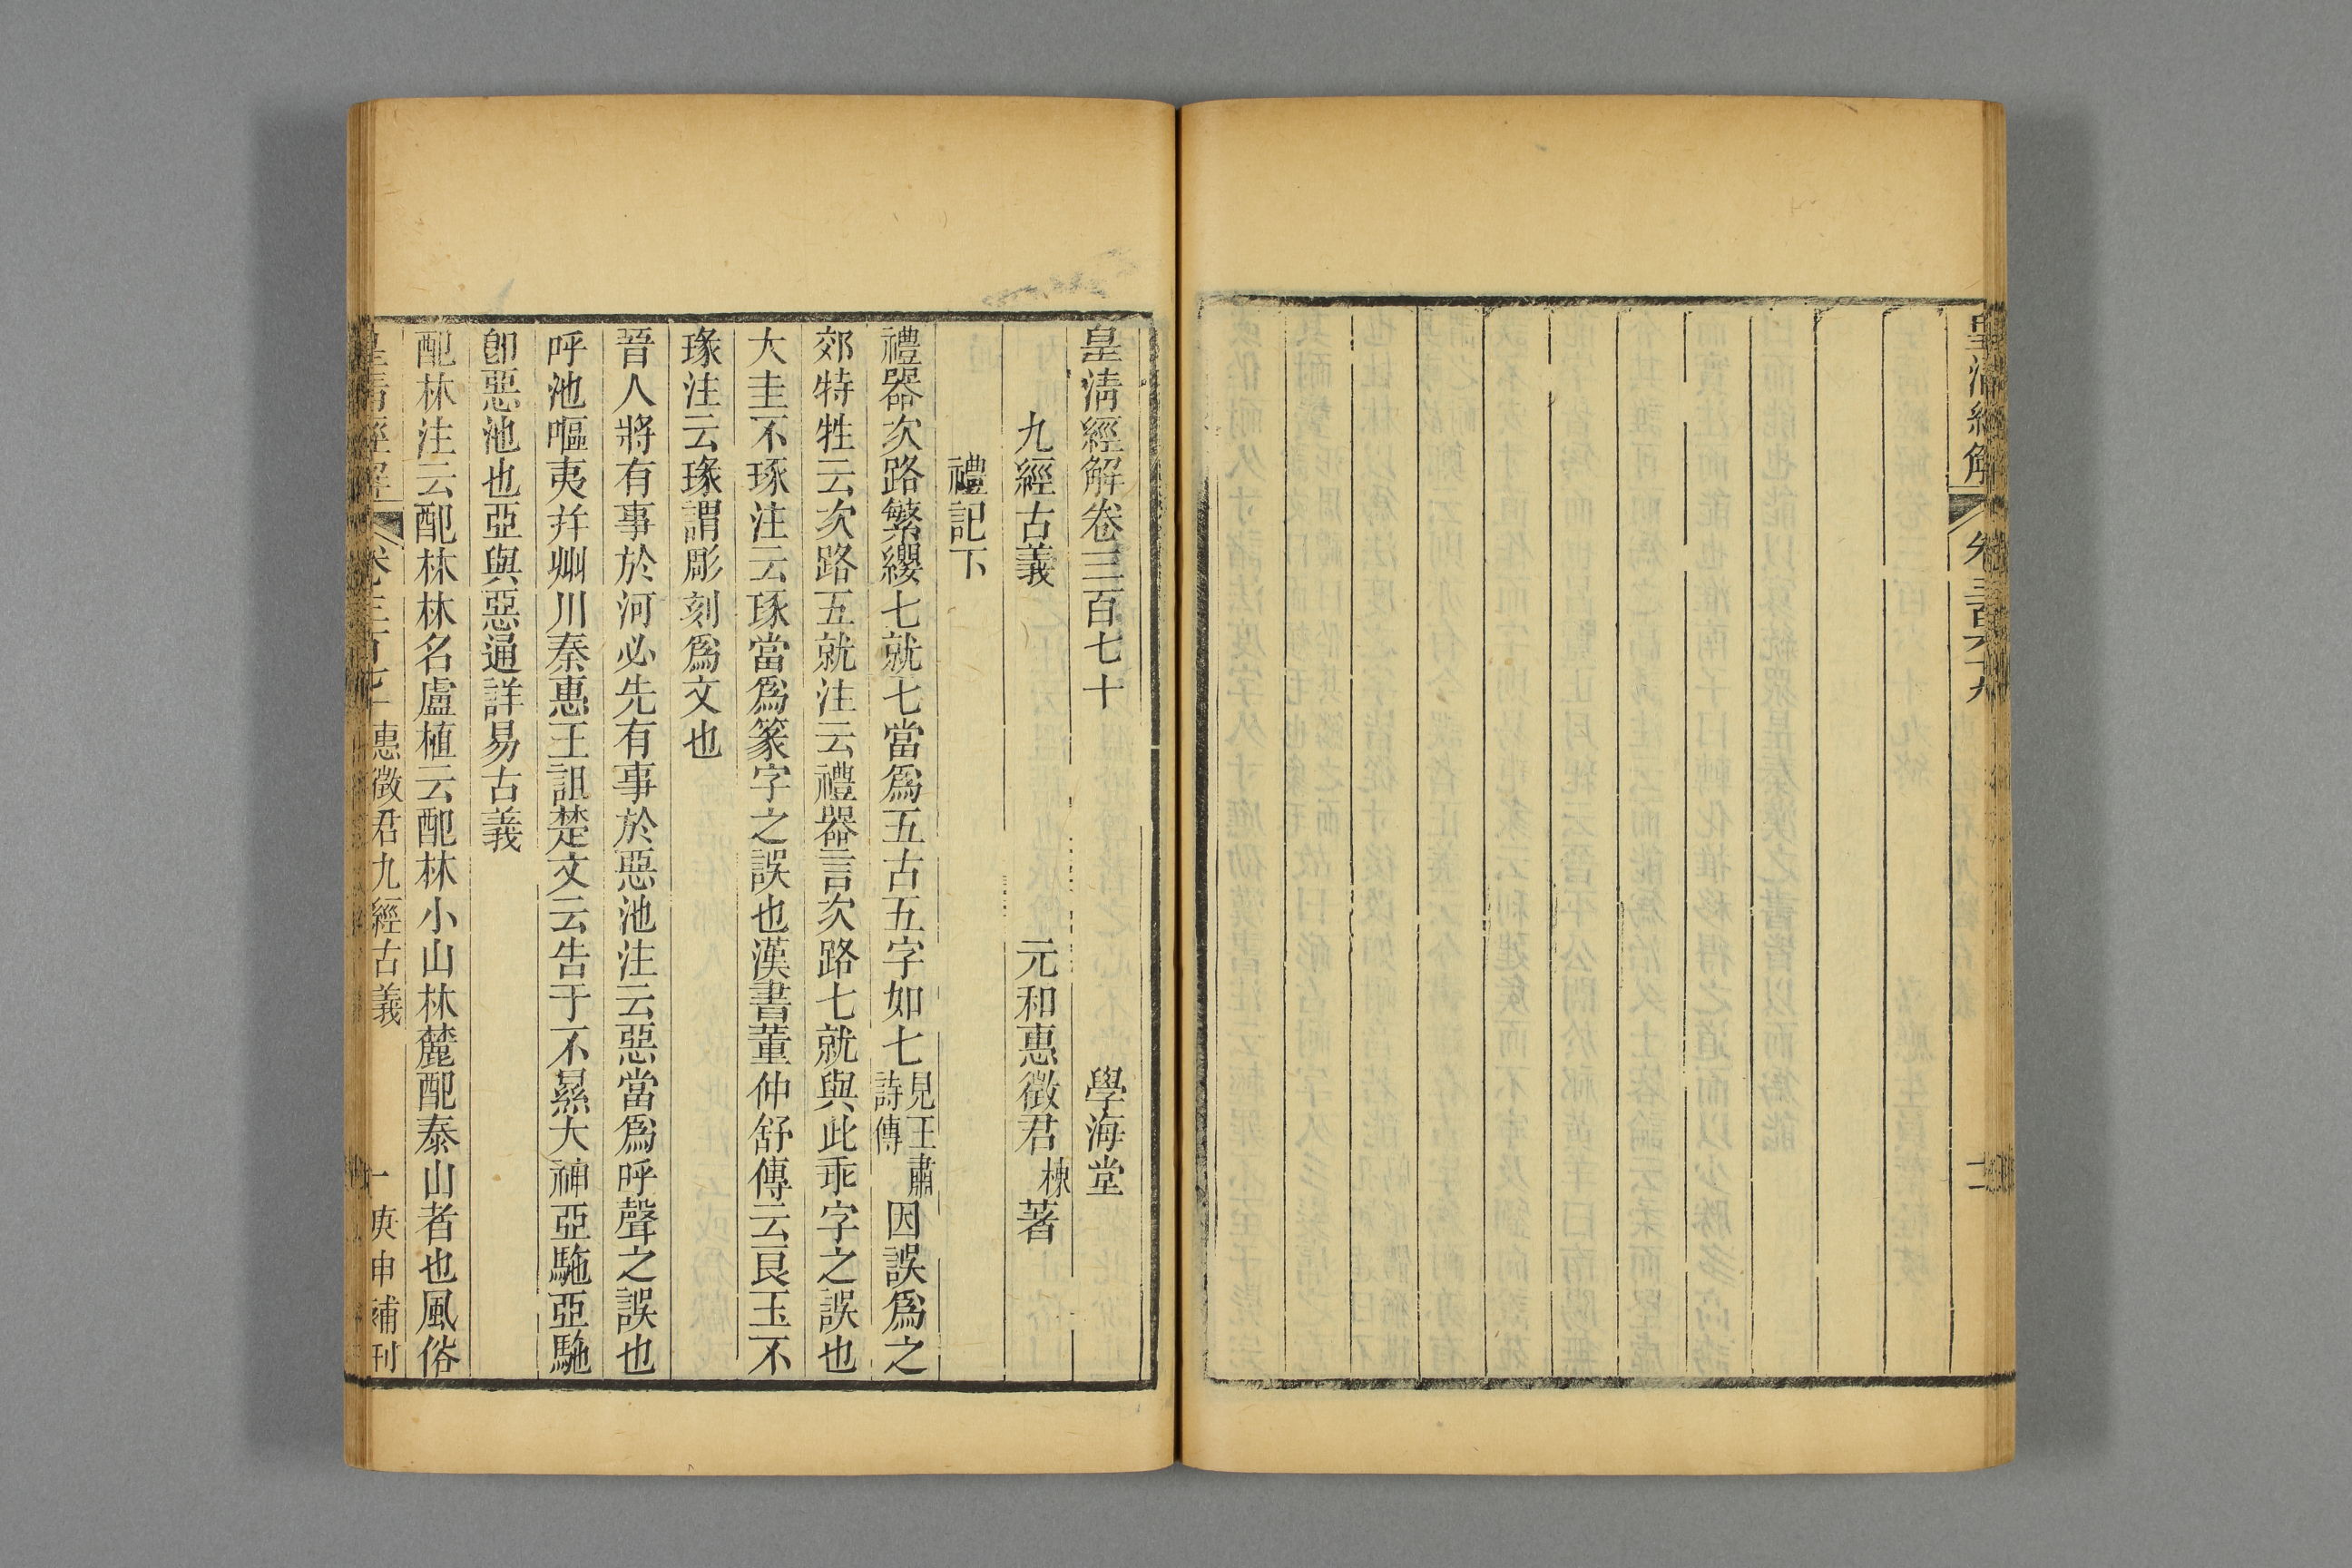 皇清經解 卷三百六十九
皇清經解卷三百七十 學海堂
九經古義 元和惠徵君棟著
禮記下
禮器次路繁纓七就七當爲五古五字如七見王肅詩傳因誤爲之
郊特牲云次路五就注云禮器言次路七就與此乖字之誤也
大圭不琢注云琢當爲篆字之誤也漢書董仲舒傳云良玉不
瑑注云瑑謂彫刻爲文也
晉人將有事於河必先有事於惡池注云惡當爲呼聲之誤也
呼池嘔夷幷州川秦惠王詛楚文云告于不㬎大神亞駞亞駞
卽惡池也亞與惡通詳易古義
配林注云配林林名盧植云配林小山林麓配泰山者也風俗
皇清經解 卷三百七十 惠徵君九經古義 一 庚申補刊